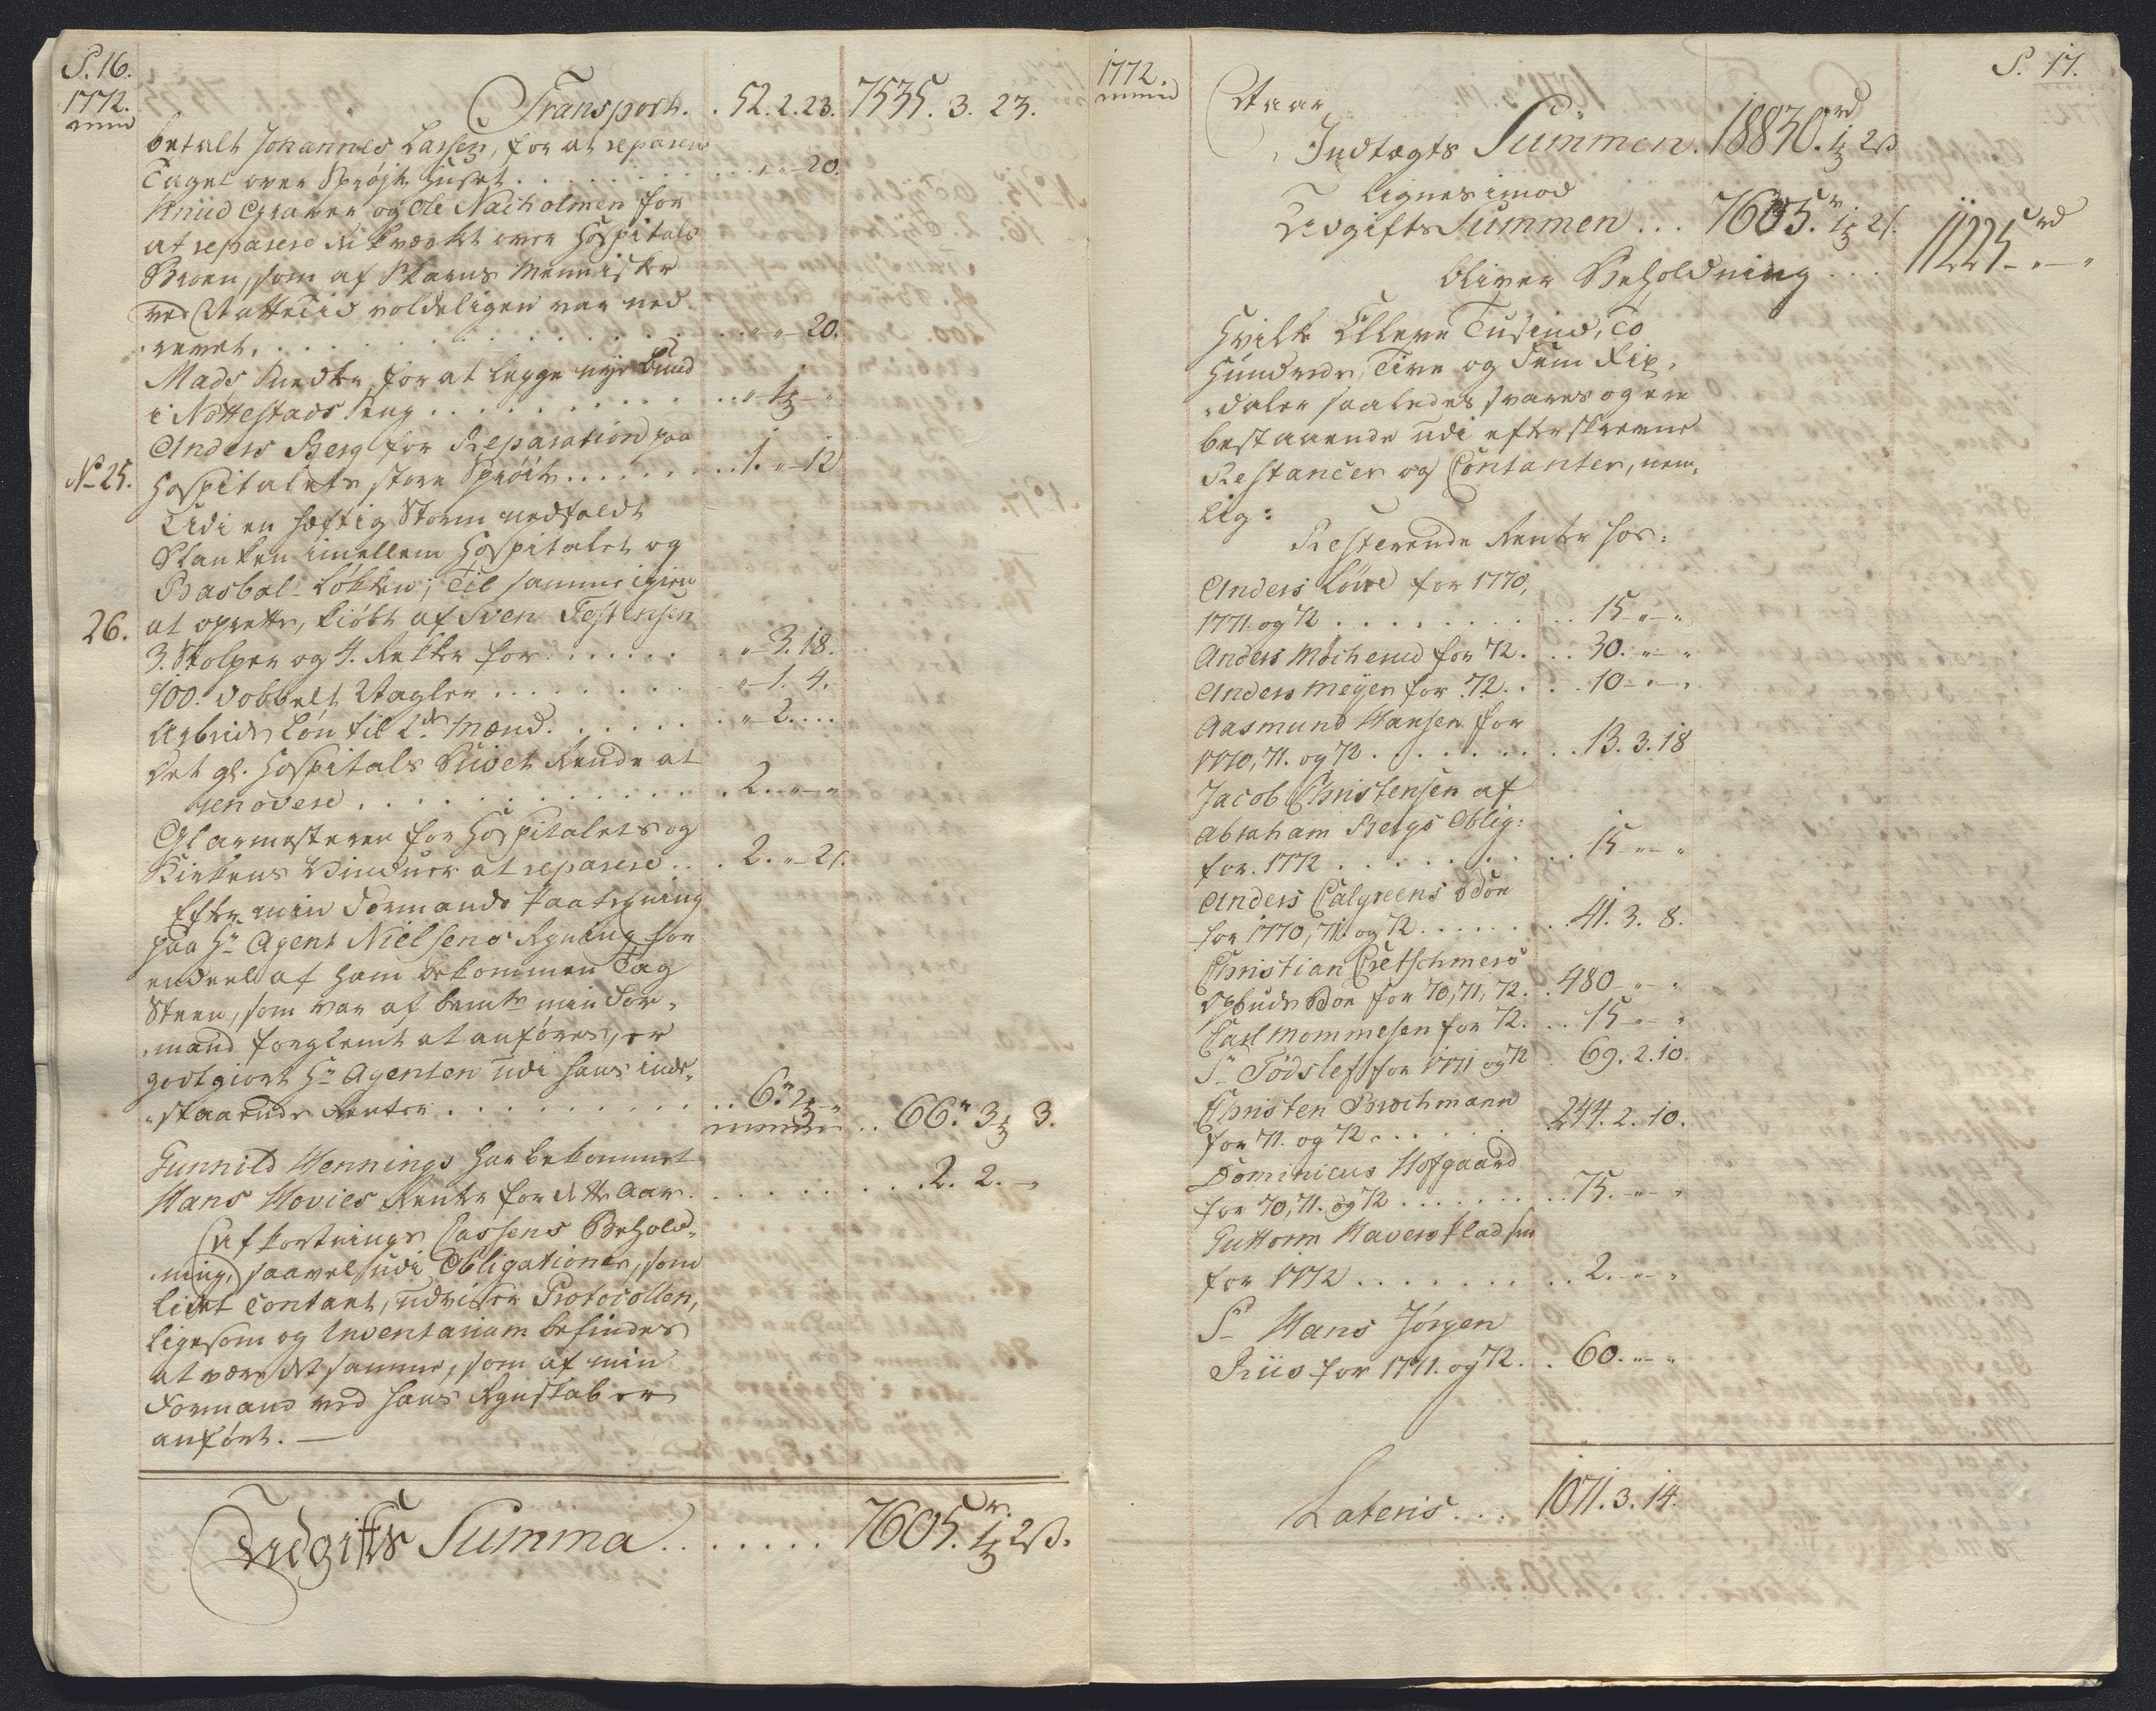 S. 16.
1772.
Transport. . 52. 2. 23. 7535. 3. 23.
betalt Johannes Lassen, for at reparere
Taget over Sprøjte Huset . . . . . „ „ 20.
Knud Graver og Ole Nachholmen for
at reparere Rekværket over Hospitals
Broen, som af Skarns Mennisker
ved Natte Tid voldeligen var ned-
revet, . . . . . „ „ 20.
Mads Snedker for at legge nye Bund
i Nottestads Seng . . . . . „ 1 „
Anders Berg for Reparation paa
No 25. Hospitalets store Sprøite . . . . . 1. „ 12
Udi en hæftig Storm nedfaldt
Planken imellem Hospitalet og
Basbøl-Løkken; Til samme igien
26. at oprette, kiøbt af Sven Testensen
3. Stolper og 4. Rekker for . . . . . „ 3. 18.
400. dobbelt Nagler . . . . . „ 1. 4.
Arbeids Løn til 2de Mænd . . . . . „ 2 . . .
Det gl. Hospitals Priveet Rende at
renovere . . . . . 2. „ „
Glarmesteren for Hospitalets og
Kirkens Vinduer at reparere . . 2. „ 21.
Efter min Formands Paategning
paa Hr Agent Nielsens Regning for
endeel af ham bekommen Tag
Steen, som var af bemte min For-
mand forglemt at anføres, er
godtgiort Hr Agenten udi hans inde-
staaende Renter . . . . . 6. 2 „
. . 66. 3 3.
Gunnild Hennings har bekommet
Hans Hovies Rente for dette Aar . . . . . 2. 2. „
Afkortnings Cassens Behold-
ning, saavel udi Obligationer, som
lidet contant, udviser Protocollen,
ligesom og Inventarium befindes
at være det samme, som af min
Formand ved hans Regnskab er
anført. —
Udgifts Summa . . . . . 7605. 1 2 ß.
S. 17.
1772.
Naar
Indtægts Summen. 18830. 1 2 ß
lignes imod
Udgifts Summen . . . 7605. 1 2 ß.
bliver Beholdning . . . 11225 rd „ „
Hvilke Elleve Tusind, To
Hundrede, Tive og Fem Rix-
daler saaledes svares og ere
bestaaende udi efterskrevne
Restancer og Contanter, nem-
lig:
Resterende Rente hos:
Anders Løwe for 1770,
1771. og 72 . . . . . 15 „ „
Anders Mocherud for 72 . . . 30. „ „
Anders Meyer for 72 . . . 10 „ „
Aasmund Hansen for
1770, 71. og 72 . . . . . 13. 3. 18
Jacob Christensen af
Abraham Bergs Oblig:
for 1772 . . . . . 15 „ „
Anders Calgreens Boe
for 1770, 71. og 72 . . . . . 41. 3. 8.
Christian Cretschmers
Opbuds Boe for 70, 71, 72 . . 480 „ „
Carl Mommesen for 72 . . . 15 „ „
Sr Todslef for 1771 og 72 . . 69. 2. 10.
Christen Brochmann
for 71. og 72 . . . . . 244. 2. 10.
Dominicus Hofgaard
for 70, 71. og 72 . . . . . 75. „ „
Guttorm Haverstadsen
for 1772 . . . . . 2. „ „
Sr Hans Jørgen
Riis for 1771. og 72 . . 60. „ „
Lateris . . . 1071. 3. 14.